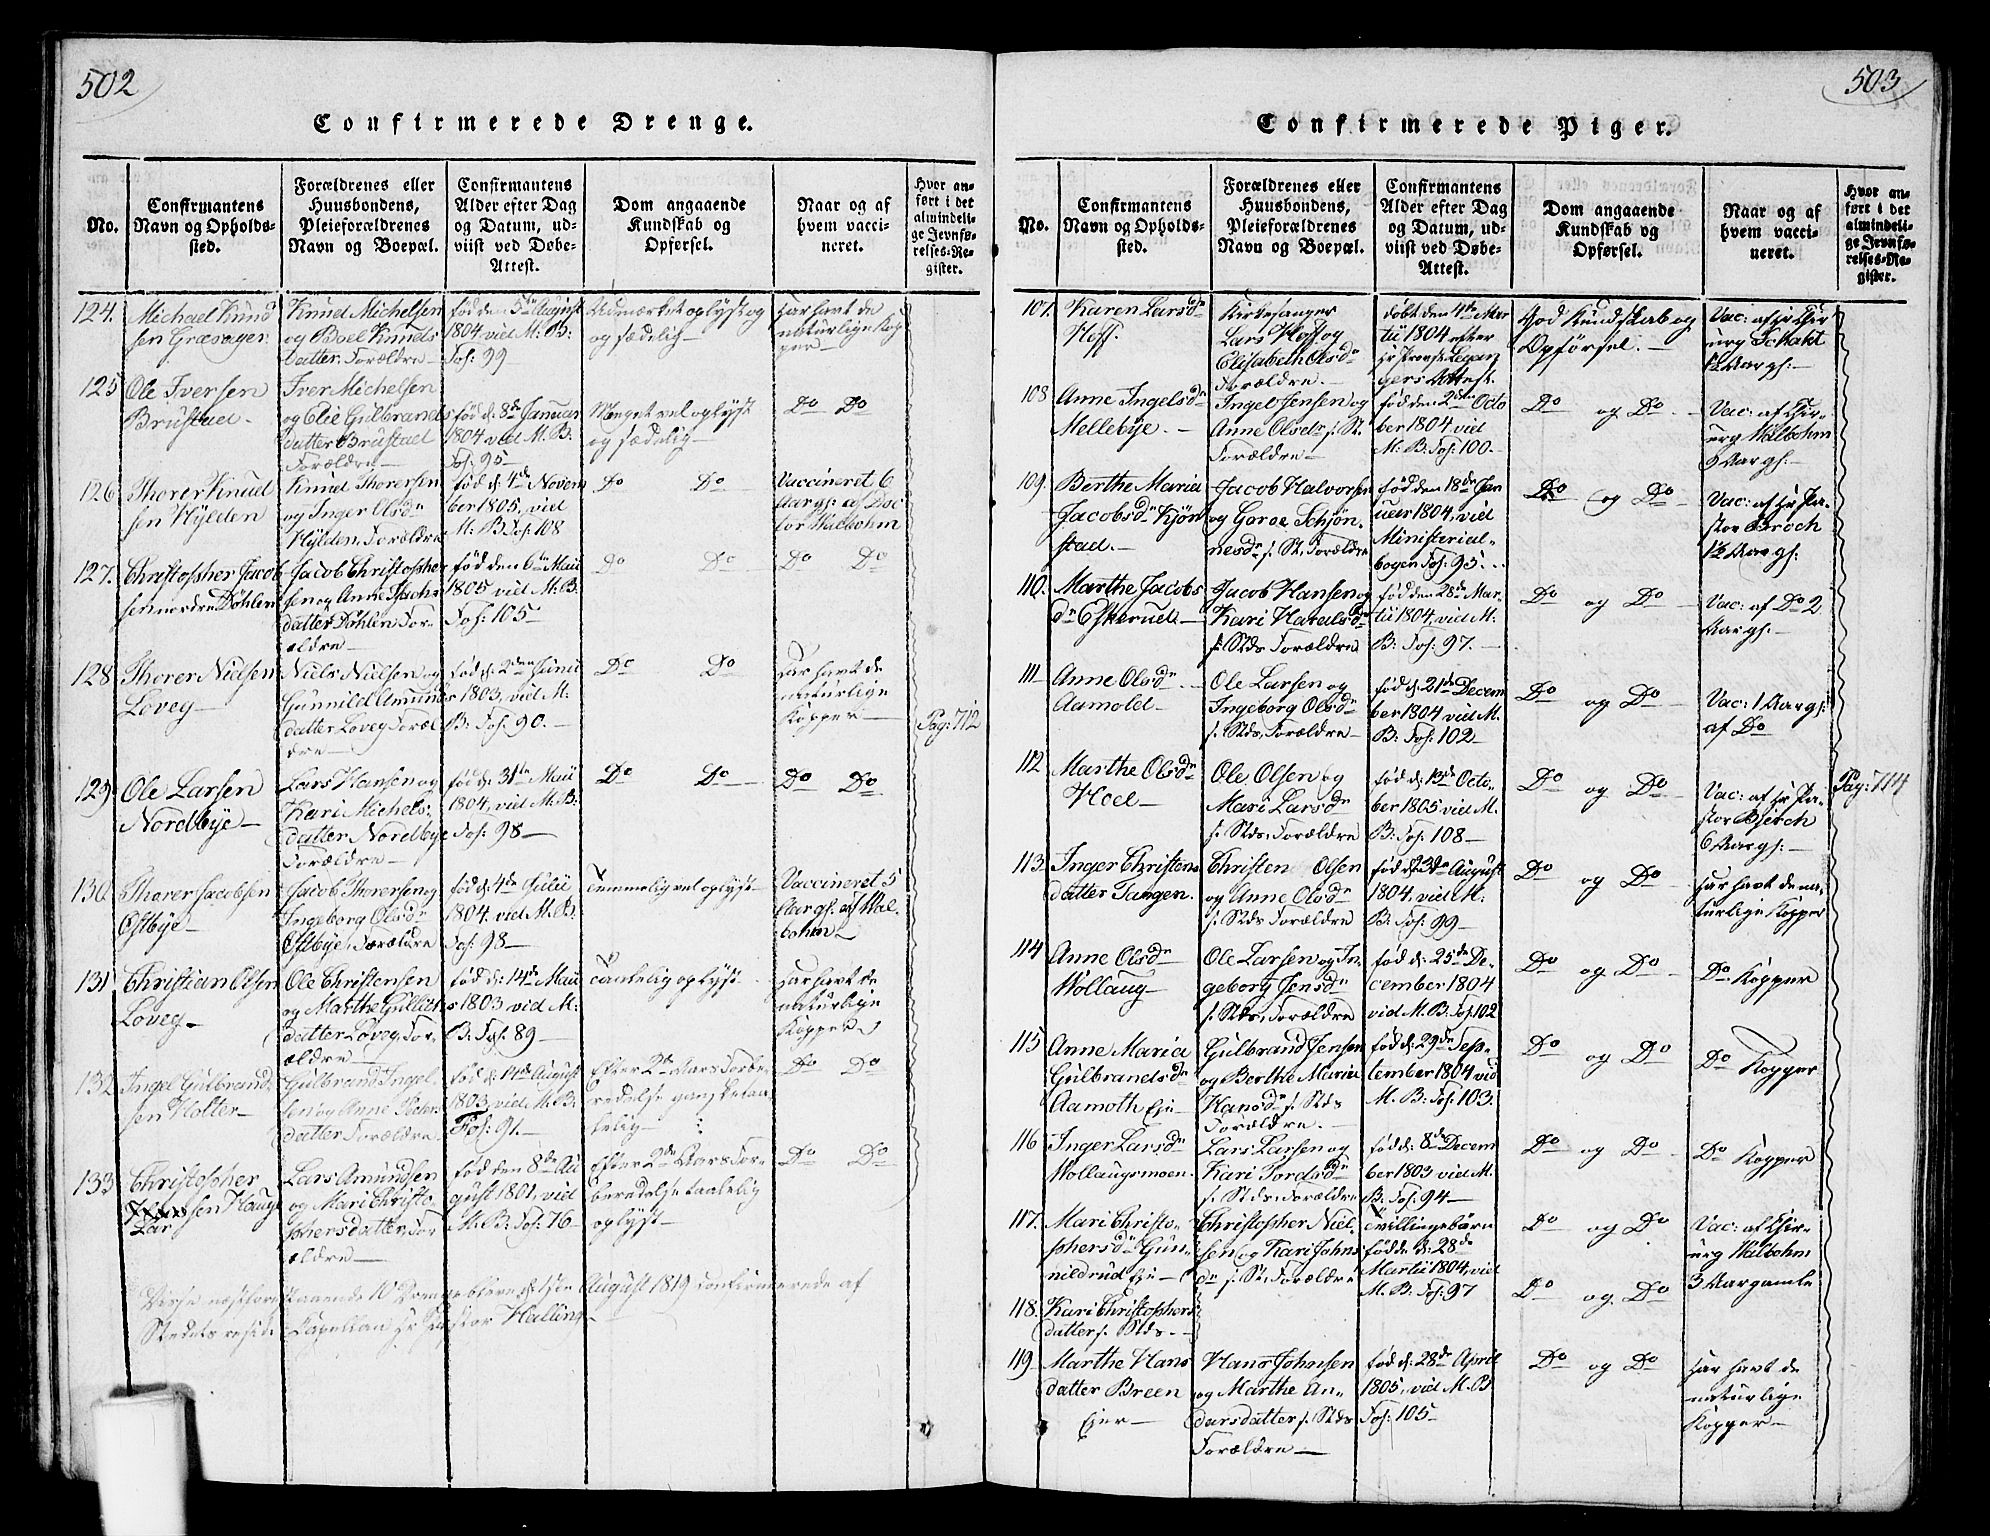 502
Confirmerede Drenge.
No.
Confirmantens
Navn og Opholds-
sted.
Forældrenes eller
Huusbondens,
Pleieforældrenes
Navn og Boepæl.
Confirmantens
Alder efter Dag
og Datum, ud-
viist ved Døbe-
Attest.
Dom angaaende
Kundskab og
Opførsel.
Naar og af
hvem vacci-
neret.
Hvor an-
ført i det
almindeli-
ge Jevnfø-
relses-Re-
gister.
124.
Michael Knud
sen Græsager.
Knud Michelsen
og Boel Knuds
datter. Forældre
fød den 5te August
1804 vid M. B:
Fol: 99
Udmærket oplyst og
og sædelig
har havt de
naturlige Kop
per
125
Ole Iversen
Brustad.
Iver Michelsen
og Elie Gulbrands
datter Brustad
Forældre
fød d: 8de Januar
1804 vid M. B:
Fol: 95
Meget vel oplyst
og sædelig
Do Do
126
Thorer Knud
sen Hylden
Knud Thorersen
og Inger Olsdr
Hylden, Forældre
fød d: 4de Novem
ber 1805, vid
M. B. Fol: 108
Do Do
Vaccineret 6
Aargl: af Doc
tor Walbohm
127.
Christopher Jacob
sen nordre Døhlen
Jacob Christopher
sen og Anne Isachs
datter Døhlen For-
ældre
fød den 6te Maii
1805 vid M. B.
Fol: 105
Do Do
Do Do
128
Thorer Nielsen
Løveg
Niels Nielsen og
Gunnild Amunds
datter Løveg Foræl
dre
fød d: 2den Junii
1803, vid M.
B: Fol: 90.
Do Do
har havt de
naturlige
Kopper
Pag: 712
129
Ole Larsen
Nordbye
Lars Hansen og
Kari Michels-
datter Nordbye
Forældre
fød d: 31te Maii
1804, vid M. B:
Fol: 98
Do Do
Do Do
130
Thorer Jacobsen
Østbye
Jacob Thorersen og
Ingeborg Olsdr
Østbye, Forældre
fød d: 4de Julii
1804. vid M. B.
Fol: 98
Temmelig vel oplyst
Vaccineret 5
Aargl: af Wal-
bohm
131
Christian Olsen
Løveg
Ole Christensen
og Marthe Gulich
datter Løveg, For-
ældre
fød d: 14de Maii
1803 vid M:
B: Fol: 89
Taalelig oplyst
har havt de
naturlige
Kopper
132
Ingel Gulbrand
sen Holter
Gulbrand Ingel-
sen og Anne Peters
datter Forældre
fød d: 14de August
1803, vid M. B.
Fol: 91.
Efter 2de Aars Forbe-
redelse ganske taa
lelig
Do Do
133
Christopher
Larsen Hauge
Lars Amundsen
og Mari Christo-
phersdatter, For-
ældre
fød den 8de Au
gust 1801, vid
M. B: Fol: 76
Efter 2de Aars For-
beredelse taalelig
oplyst
Do Do
Disse næstforestaaende 10 Drenge bleve d: 1ste August 1819 confirmerede af
Stedets resid: Capellan Hr Pastor Halling
503
Confirmerede Piger.
No.
Confirmantens
Navn og Opholds-
sted.
Forældrenes eller
Huusbondens,
Pleieforældrenes
Navn og Boepæl.
Confirmantens
Alder efter Dag
og Datum, ud-
viist ved Døbe-
Attest.
Dom angaaende
Kundskab og
Opførsel.
Naar og af
hvem vacci-
neret.
Hvor an-
ført i det
almindeli-
ge Jevnfø-
relses-Re-
gister.
107.
Karen Larsdr
Hoff.
Kirkesanger
Lars Hoff og
Elisabeth Olsdr
Forældre.
døbt den 4de Mar
tii 1804 efter
Hr Provst Legan
gers Attest.
God Kundskab og
Opførsel.
Vac: af Hr Chir
urg Schakt
1½ Aargl:
108
Anne Ingelsdr
Mellebye.
Ingel Jensen og
Anne Olsdr s. St.
Forældre
fød den 2den Octo
ber 1804 vid
M. B: Fol: 100.
Do og Do
Vac: af Chir-
urg Walbohm
9 Aargl:
109.
Berthe Maria
Jacobsdr Kjøn
stad.
Jacob Halvorsen
og Goroe Schjøn-
nesdr s. St. Forældre
fød den 18de Ja
nuar 1804, vid
Ministerial-
bogen Fol: 95.
Do og Do
Vac: af Hr Pa-
stor Broch
1½ Aargl:
110.
Marthe Jacobs
dr Eskerud
Jacob Hansen og
Kari Haralsdr
s. Stds Forældre
fød den 28de Mar-
tii 1804, vid M:
B: Fol: 97.
Do og Do
Vac: af Do 2
Aargl:
111
Anne Olsdr
Aamold
Ole Larsen og
Ingeborg Olsdr
s. Stds, Forældre
fød d: 21de Decem
ber 1804 vid M.
B: Fol: 102
Do og Do
Vac: 1 Aargl:
af Do
112
Marthe Olsdr
Hoel
Ole Olsen og
Mari Larsdr
s. Stds, Forældre
fød d: 13de Octo-
ber 1805 vid M.
B: Fol: 108
Do og Do
Vac: af Hr Pa-
stor Bjerch
6 Aargl:
Pag: 714
113.
Inger Christens
datter Tangen.
Christen Olsen
og Anne Olsdr
s. Stds Forældre
fød d: 23de August
1804, vid M:
B: Fol: 99
Do og Do
har havt de na-
turlige Kopper
114
Anne Olsdr
Wollaug
Ole Larsen og In-
geborg Jensdr
s. Stds, Forældre
fød d: 25de De-
cember 1804
vid M. B: Fol: 102
Do og Do
Do Kopper
115
Anne Maria
Gulbrandsdr
Aamoth Eje
Gulbrand Jensen
og Berthe Maria
Hansdr s. Stds
Forældre.
fød d: 29de Sep-
tember 1804 vid
M. B: Fol: 103.
Do og Do
Do Kopper
116
Inger Larsdr
Wollaugsmoen.
Lars Larsen og
Kari Tordsdr
s. Stds, Forældre
fød d: 8de Decem
ber 1803 vid M.
B: Fol: 94
Do og Do
Do Kopper
117.
Mari Christo-
phersdr Gun-
nildrud Eje
Christopher Niel-
sen og Kari Johns
dr s. St: Forældre
Tvillingebørn
fødde d: 28de
Martii 1804, vid
M. B: Fol: 97
Do og Do
Vac: af Chir-
urg Walbohm
3 Aar gamle
118.
Kari Christophers
datter s. Stds.
Do og Do
119.
Marthe Hans
datter Breen
Ejer
Hans Johnsen
og Marthe An-
dersdatter s. Stds
Forældre
fød d: 28de April
1805, vid M. B
Fol: 105
Do og Do
har havt de
naturlige
Kopper